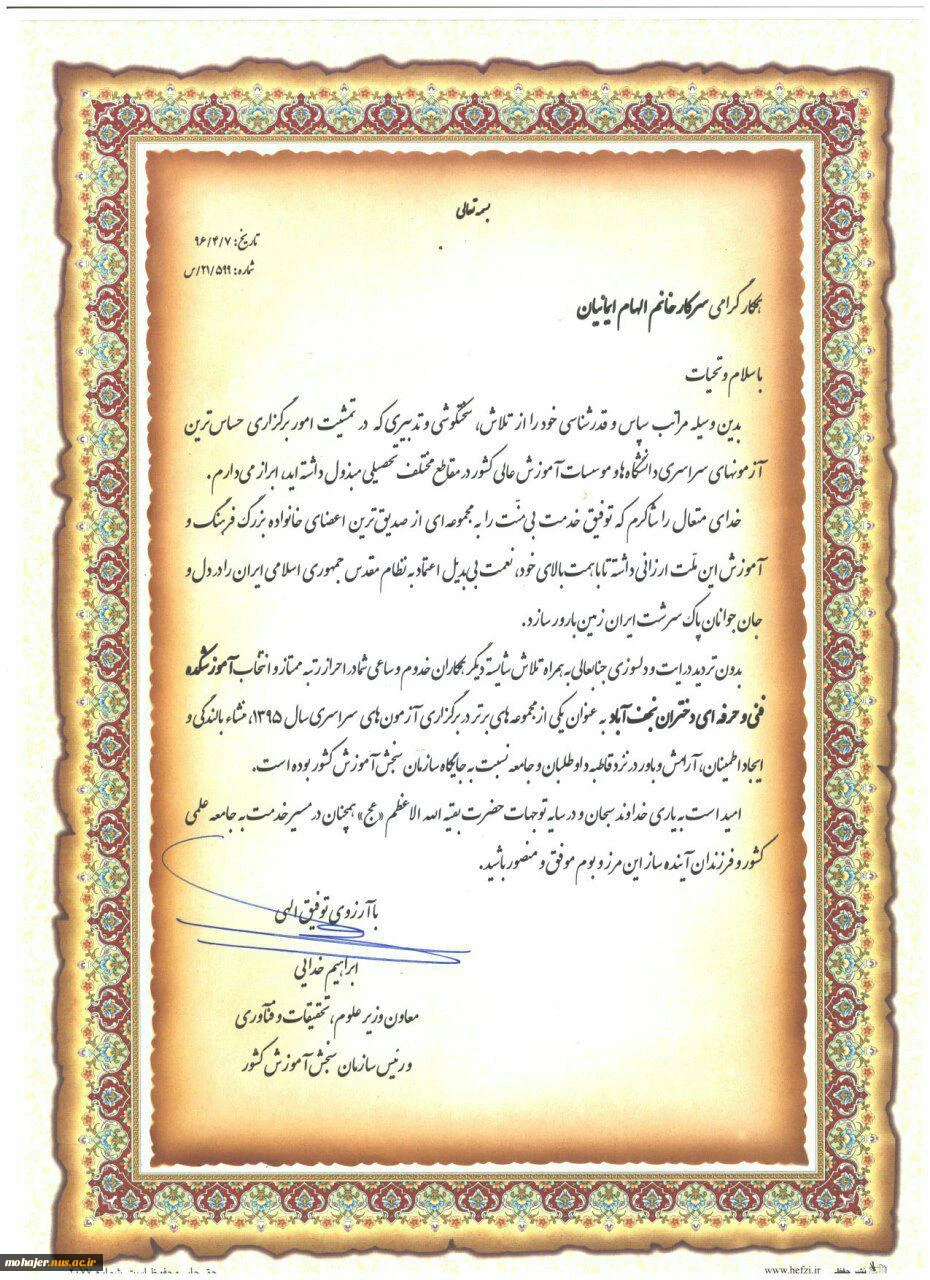 بسمه تعالی
تاریخ: ۹۶/۴/۷
شماره: ۲۱/۵۹۹/س
همکار گرامی سرکار خانم الهام ایمانیان
با سلام و تحیات
بدین وسیله مراتب سپاس و قدرشناسی خود را از تلاش، سختگوشی و تدبیری که در تمشیت امور برگزاری حساس ترین
آزمونهای سراسری دانشگاه ها و موسسات آموزش عالی کشور در مقاطع مختلف تحصیلی مبذول داشته اید، ابراز می دارم.
خدای متعال را شاکرم که توفیق خدمت بی منّت را به مجموعه ای از صدیق ترین اعضای خانواده بزرگ فرهنگ و
آموزش این ملّت ارزانی داشته تا با همت بالای خود، نعمت بی بدیل اعتماد به نظام مقدس جمهوری اسلامی ایران را در دل و
جان جوانان پاک سرشت ایران زمین بارور سازد.
بدون تردید درایت و دلسوزی جنابعالی به همراه تلاش شایسته دیگر همکاران خدوم و ساعی شما در احراز رتبه ممتاز و انتخاب آموزشکده
فنی و حرفه ای دختران نجف آباد به عنوان یکی از مجموعه های برتر در برگزاری آزمون های سراسری سال ۱۳۹۵، منشاء بالندگی و
ایجاد اطمینان، آرامش و باور در نزد قاطبه داوطلبان و جامعه نسبت به جایگاه سازمان سنجش آموزش کشور بوده است.
امید است به یاری خداوند سبحان و در سایه توجهات حضرت بقیه الله الاعظم «عج» همچنان در مسیر خدمت به جامعه علمی
کشور و فرزندان آینده ساز این مرز و بوم موفق و منصور باشید.
با آرزوی توفیق الهی
ابراهیم خدایی
معاون وزیر علوم، تحقیقات و فنّآوری
و رئیس سازمان سنجش آموزش کشور
mohajer.nus.ac.ir
www.hefzi.ir